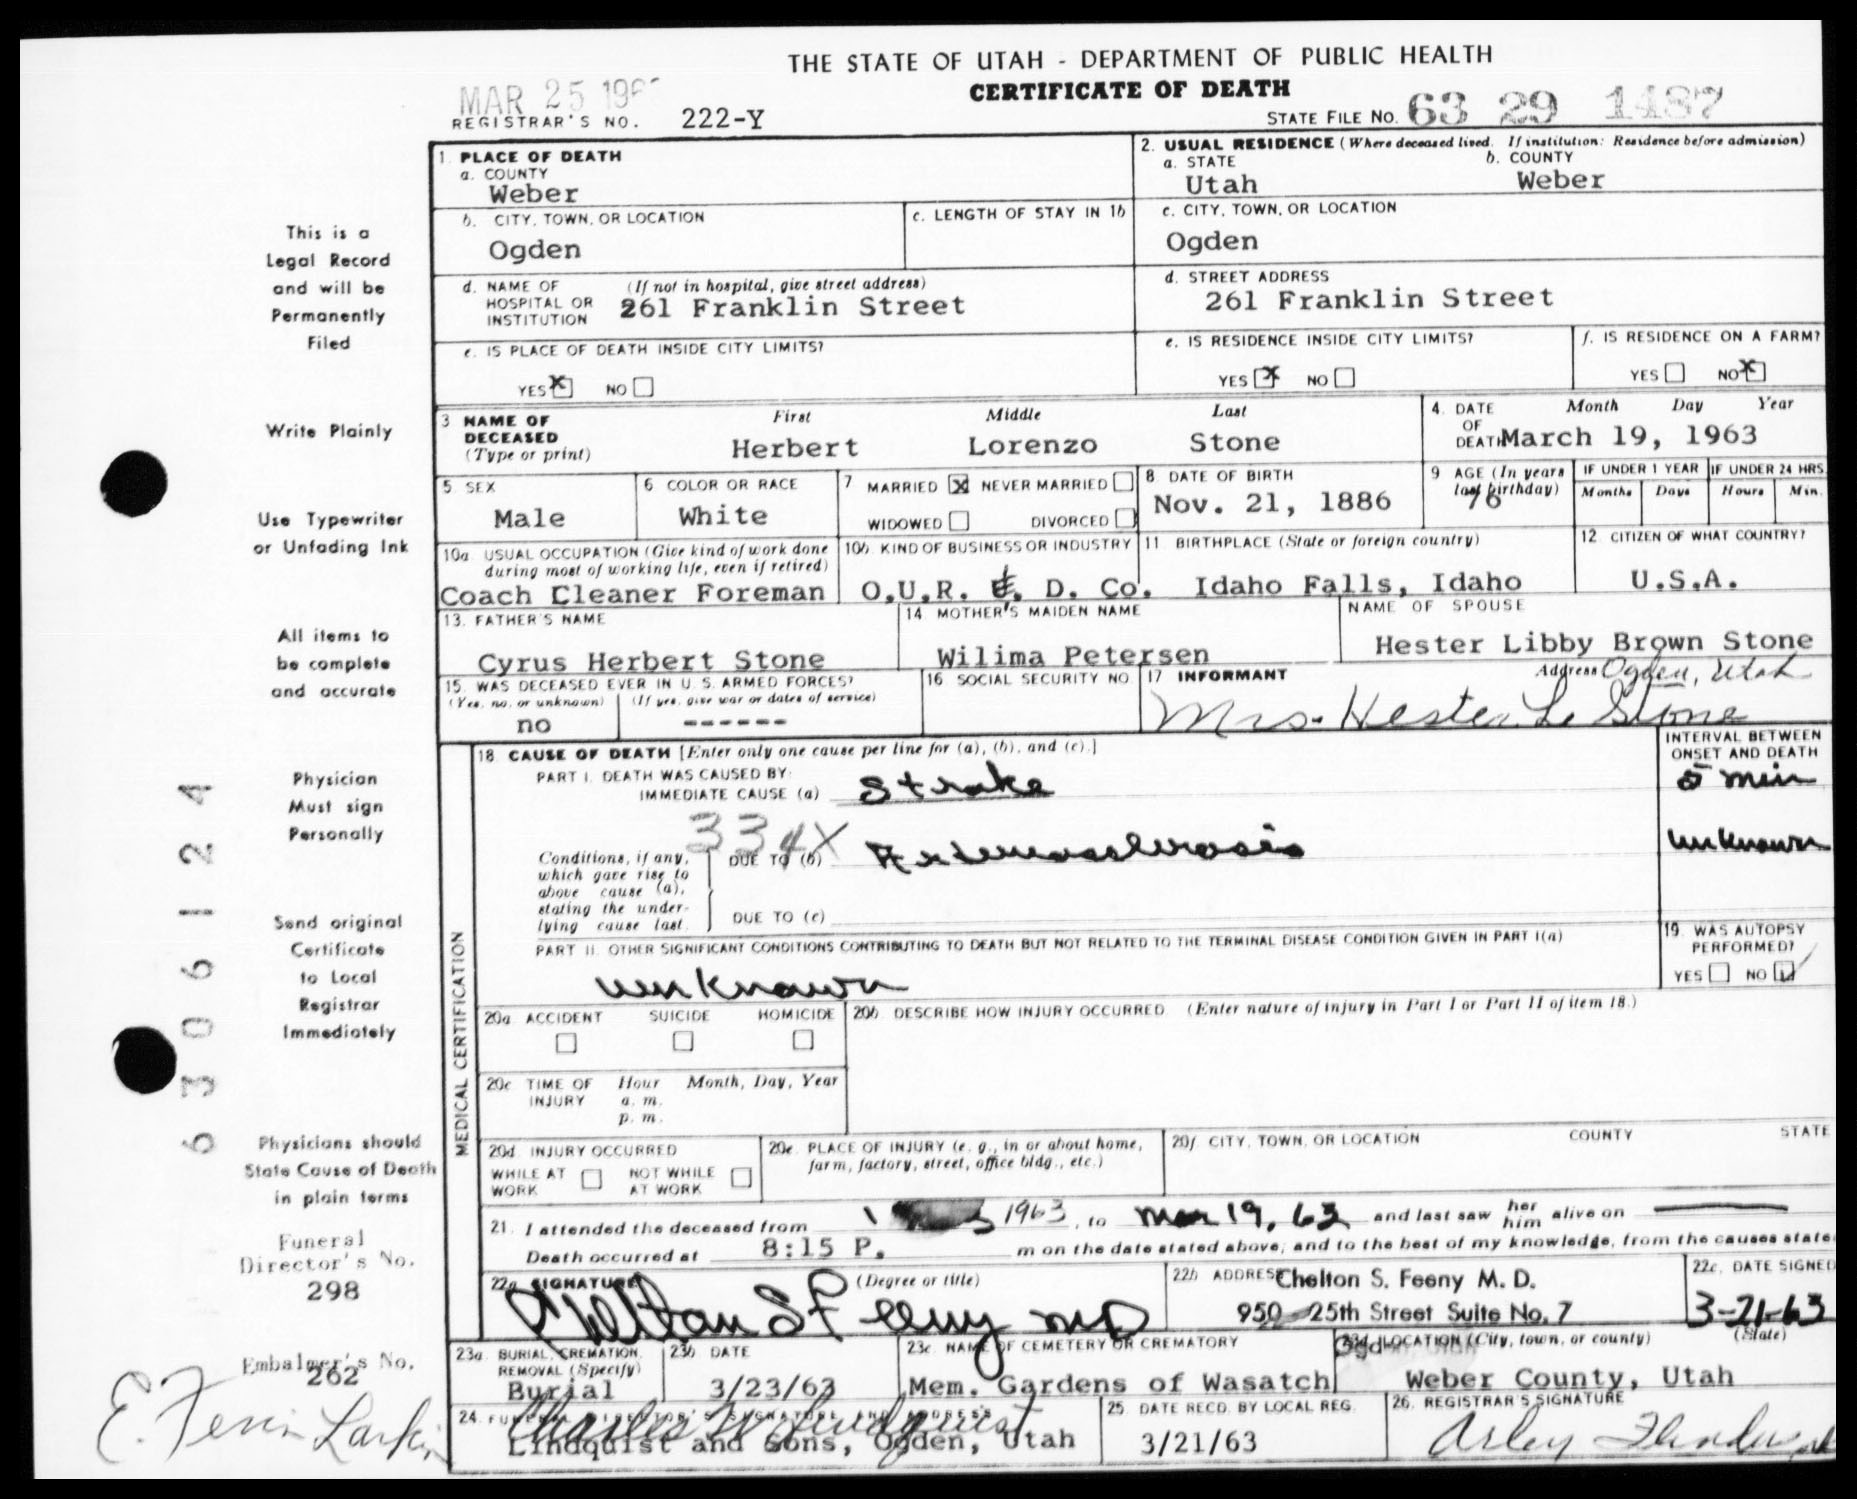 THE STATE OF UTAH - DEPARTMENT OF PUBLIC HEALTH
CERTIFICATE OF DEATH
MAR 25 196
REGISTRAR'S NO. 222-Y
STATE FILE NO. 63 29 1487
This is a
Legal Record
and will be
Permanently
Filed
Write Plainly
Use Typewriter
or Unfading Ink
All items to
be complete
and accurate
Physician
Must sign
Personally
Send original
Certificate
to Local
Registrar
Immediately
Physicians should
State Cause of Death
in plain terms
Funeral
Director's No.
298
Embalmer's No.
262
E. Ferrin Larkin
6 3 0 6 1 2 4
1. PLACE OF DEATH
a. COUNTY
Weber
2. USUAL RESIDENCE (Where deceased lived. If institution: Residence before admission)
a. STATE b. COUNTY
Utah Weber
b. CITY, TOWN, OR LOCATION
Ogden
c. LENGTH OF STAY IN 1b
c. CITY, TOWN, OR LOCATION
Ogden
d. NAME OF (If not in hospital, give street address)
HOSPITAL OR 261 Franklin Street
INSTITUTION
d. STREET ADDRESS
261 Franklin Street
e. IS PLACE OF DEATH INSIDE CITY LIMITS?
YES X NO
e. IS RESIDENCE INSIDE CITY LIMITS?
YES X NO
f. IS RESIDENCE ON A FARM?
YES NO X
3 NAME OF First Middle Last
DECEASED
(Type or print) Herbert Lorenzo Stone
4. DATE Month Day Year
OF
DEATH March 19, 1963
5. SEX
Male
6 COLOR OR RACE
White
7 MARRIED X NEVER MARRIED
WIDOWED DIVORCED
8 DATE OF BIRTH
Nov. 21, 1886
9 AGE (In years
last birthday)
76
IF UNDER 1 YEAR IF UNDER 24 HRS.
Months Days Hours Min.
10a. USUAL OCCUPATION (Give kind of work done
during most of working life, even if retired)
Coach Cleaner Foreman
10b. KIND OF BUSINESS OR INDUSTRY
O.U.R. & D. Co.
11 BIRTHPLACE (State or foreign country)
Idaho Falls, Idaho
12 CITIZEN OF WHAT COUNTRY?
U.S.A.
13. FATHER'S NAME
Cyrus Herbert Stone
14 MOTHER'S MAIDEN NAME
Wilima Petersen
NAME OF SPOUSE
Hester Libby Brown Stone
15. WAS DECEASED EVER IN U. S. ARMED FORCES?
(Yes, no, or unknown) (If yes, give war or dates of service)
no ------
16 SOCIAL SECURITY NO.
17 INFORMANT Address Ogden, Utah
Mrs. Hester L. Stone
MEDICAL CERTIFICATION
18 CAUSE OF DEATH [Enter only one cause per line for (a), (b), and (c).]
INTERVAL BETWEEN
ONSET AND DEATH
PART I. DEATH WAS CAUSED BY:
IMMEDIATE CAUSE (a) Stroke 5 min
334X
Conditions, if any,
which gave rise to
above cause (a),
stating the under-
lying cause last.
DUE TO (b) Arteriosclerosis unknown
DUE TO (c)
PART II. OTHER SIGNIFICANT CONDITIONS CONTRIBUTING TO DEATH BUT NOT RELATED TO THE TERMINAL DISEASE CONDITION GIVEN IN PART I(a)
unknown
19. WAS AUTOPSY
PERFORMED?
YES NO ✓
20a ACCIDENT SUICIDE HOMICIDE
20b. DESCRIBE HOW INJURY OCCURRED (Enter nature of injury in Part I or Part II of item 18.)
20c TIME OF Hour Month, Day, Year
INJURY a. m.
p. m.
20d. INJURY OCCURRED
WHILE AT NOT WHILE
WORK AT WORK
20e. PLACE OF INJURY (e. g., in or about home,
farm, factory, street, office bldg., etc.)
20f. CITY, TOWN, OR LOCATION COUNTY STATE
21. I attended the deceased from 1963, to Mar 19, 63 and last saw her him alive on
Death occurred at 8:15 P. m on the date stated above; and to the best of my knowledge, from the causes state
22a SIGNATURE (Degree or title)
Chelton S Feeny MD
22b ADDRESS Chelton S. Feeny M. D.
950 25th Street Suite No. 7
22c. DATE SIGNED
3-21-63
23a. BURIAL, CREMATION,
REMOVAL (Specify)
Burial
23b DATE
3/23/63
23c. NAME OF CEMETERY OR CREMATORY
Mem. Gardens of Wasatch
23d. LOCATION (City, town, or county) (State)
Weber County, Utah
24. FUNERAL DIRECTOR'S SIGNATURE AND ADDRESS
Charles W Lindquist
Lindquist and Sons, Ogden, Utah
25. DATE RECD. BY LOCAL REG.
3/21/63
26. REGISTRAR'S SIGNATURE
Arley